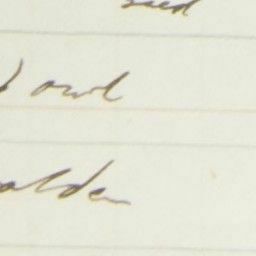 seed
) owl
alden